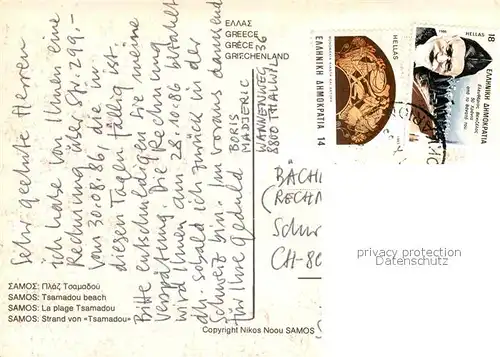 Sehr geehrte Herren
ich habe von Ihnen eine
Rechnung über SFr. 299.-
vom 30.08.86, die in
diesen Tagen fällig ist.
Bitte entschuldigen Sie meine
Verspätung. Die Rechnung
wird Ihnen am 28.10.86 bezahlt
d.h. sobald ich zurück in der
Schweiz bin. Im voraus dankend
für Ihre geduld
BORIS
MADJERIC
WANNENWEG 36
8800 THALWIL
ΕΛΛΑΣ
GREECE
GRÈCE
GRIECHENLAND
ΕΛΛΗΝΙΚΗ ΔΗΜΟΚΡΑΤΙΑ 14
HELLAS
18
HELLAS
ΕΛΛΗΝΙΚΗ ΔΗΜΟΚΡΑΤΙΑ
Ελευθέριος Βενιζέλος
50 Χρόνια
από το θάνατό του
BÄCH
(RECHN
Schw
CH-80
privacy protection
Datenschutz
ΣΑΜΟΣ: Πλάζ Τσαμαδού
SAMOS: Tsamadou beach
SAMOS: La plage Tsamadou
SAMOS: Strand von «Tsamadou»
Copyright Nikos Noou SAMOS